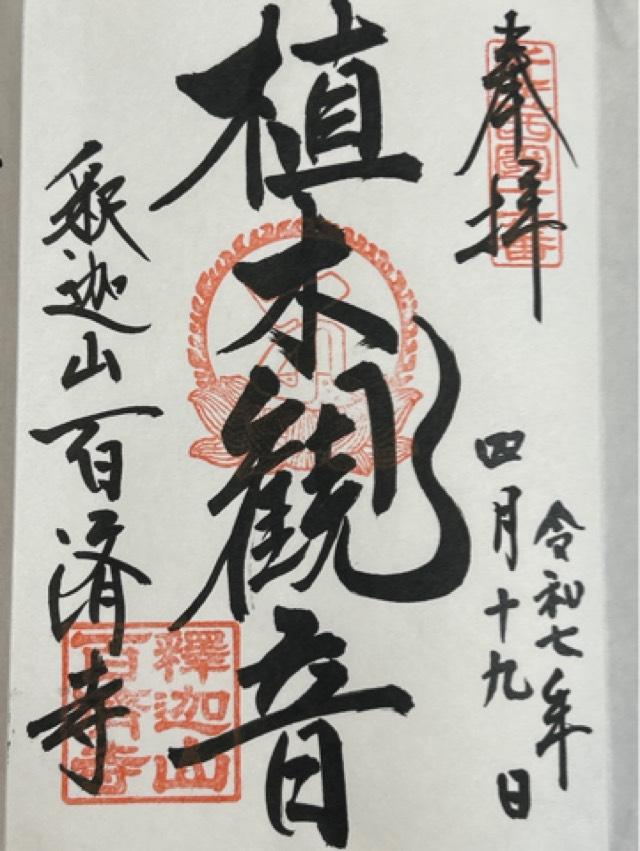 奉拝
西國
令和七年
四月十九日
植木観音
釈迦山百済寺
釋迦山
百濟寺